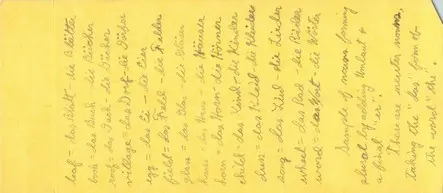 leaf = das Blatt - die Blätter
book = das Buch - die Bücher
roof = das Dach - die Dächer
village = das Dorf - die Dörfer
egg = das Ei - die Eier
field = das Feld - die Felder
glass = das Glas - die Gläser
house = das Haus - die Häuser
horn = das Horn - die Hörner
child = das Kind - die Kinder
dress = das Kleid - die Kleider
song = das Lied - die Lieder
wheel = das Rad - die Räder
word = das Wort - die Wörter
Sample of nouns forming
plural by adding Umlaut &
a final "er".
These are neuter nouns,
taking the "das" form of
the word "the".